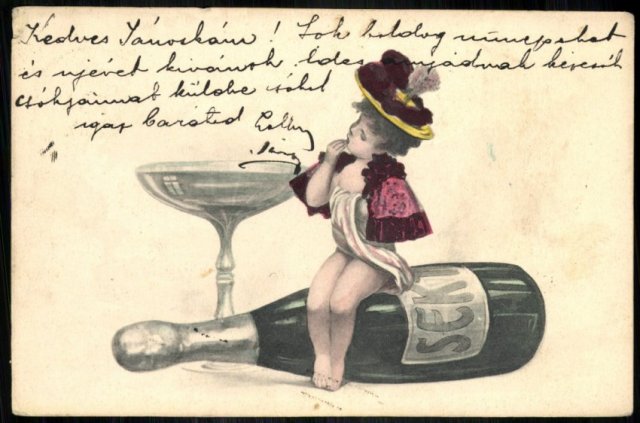 Kedves Jánoskám! Sok boldog ünnepeket
és ujévet kivánok édes anyádnak kézcsók
csókjaimat küldve
igaz barátod
SEKT